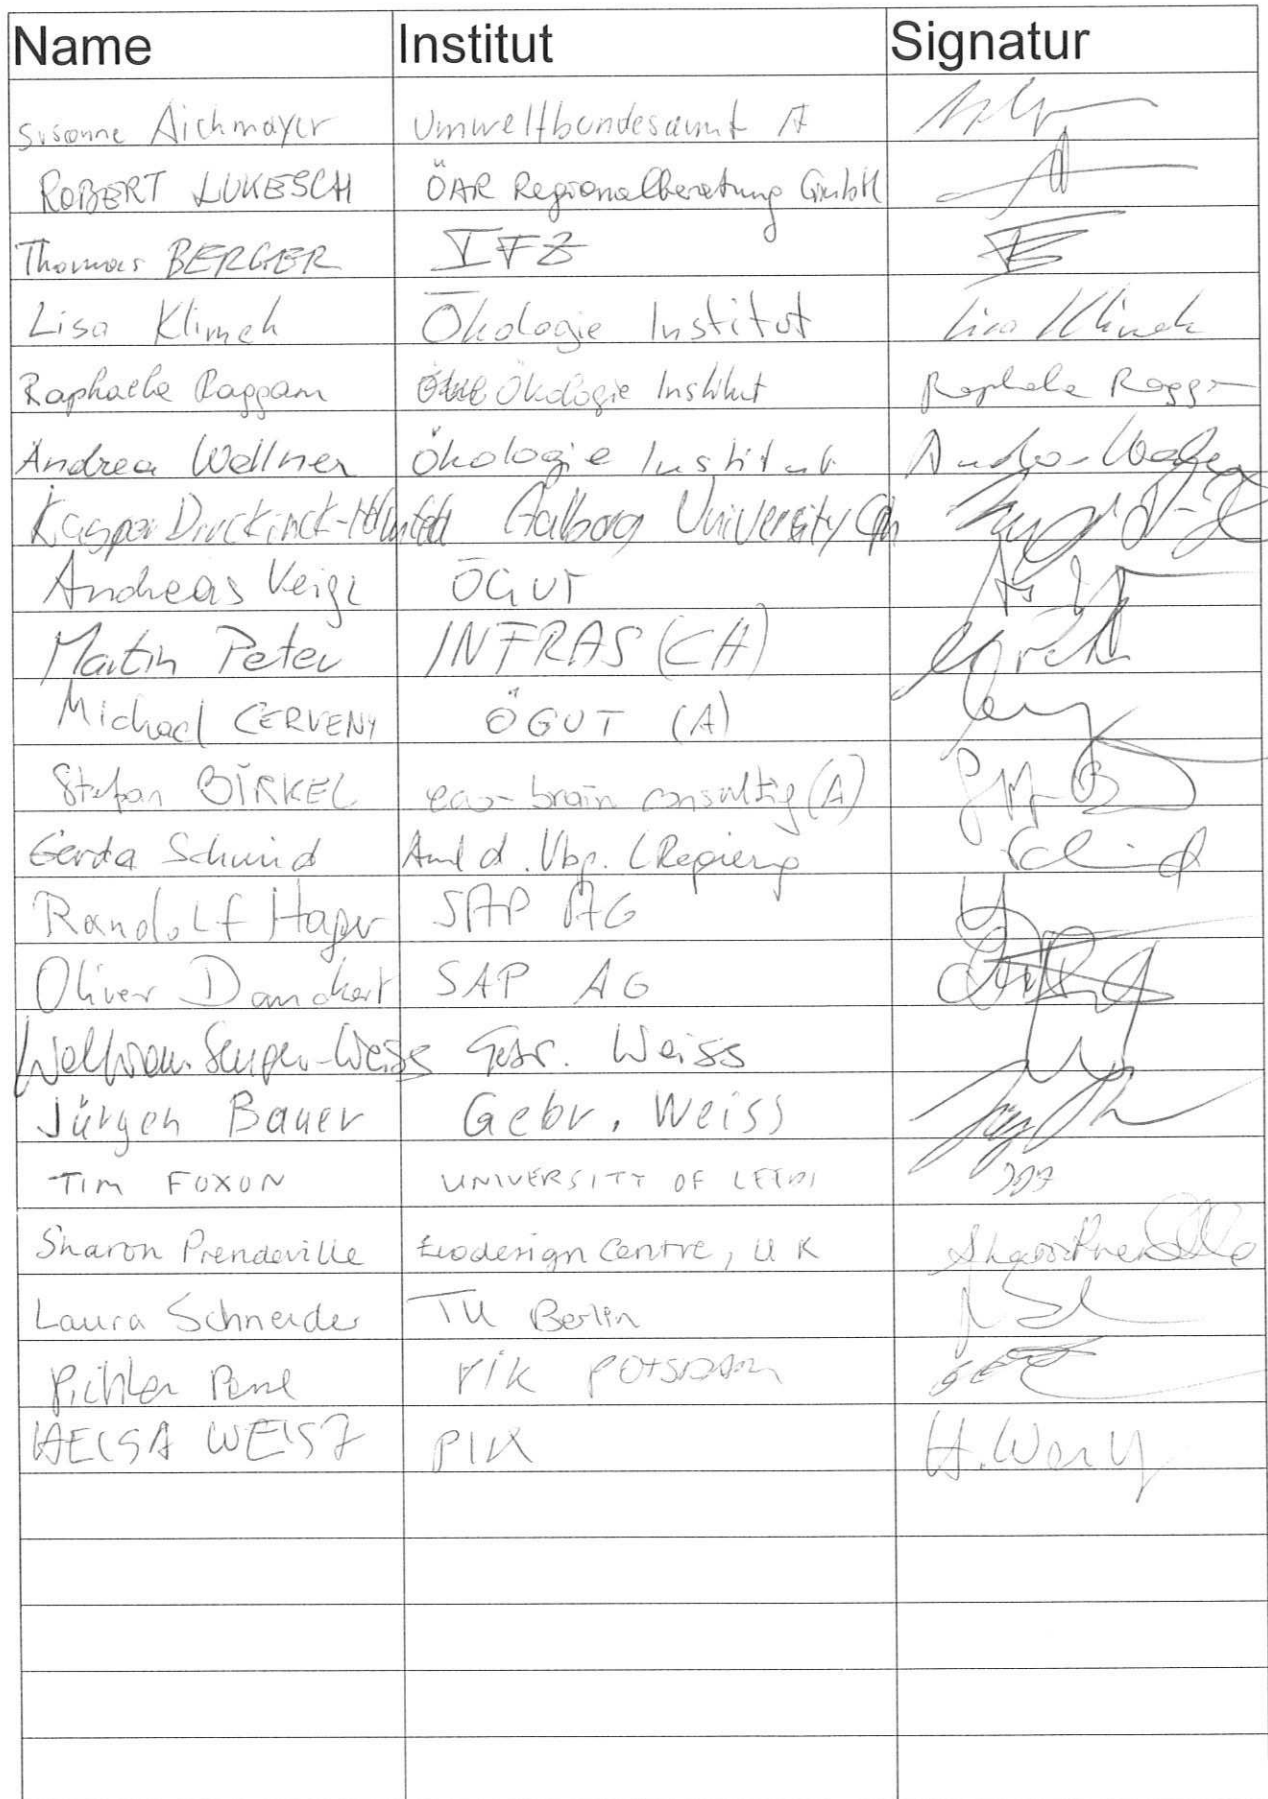 Name Institut Signatur
Susanne Aichmayer Umweltbundesamt A
ROBERT LUKESCH ÖAR Regionalberatung GmbH
Thomas BERGER IFZ
Lisa Klimek Ökologie Institut Lisa Klimek
Raphaela Raggam Ökologie Institut Raphaela
Andrea Wallner Ökologie Institut
Kasper Aalborg University Cph
Andreas Veigl ÖGUT
Martin Peter INFRAS (CH)
Michael CERVENY ÖGUT (A)
Stefan BIRKEL brain consulting (A)
Gerda Schmid Amt d. Schmid
Randolf SAP AG
Oliver SAP AG
Gebr. Weiss
Jürgen Bauer Gebr. Weiss
TIM FOXON UNIVERSITY OF LEEDS
Sharon Prendeville Ecodesign Centre, UK Sharon Prendeville
Laura Schneider TU Berlin
Pichler PIK POTSDAM
HELGA WEISZ PIK H. Weisz